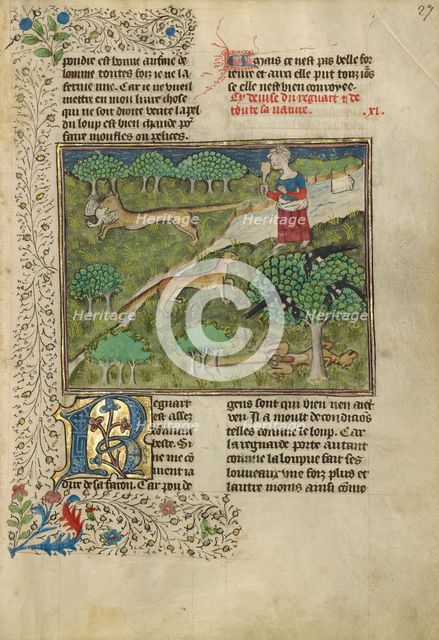 27
poudre est bonne aufine de
lomme toutes foiz ie ne la
ferme mie. Car ie ne vueil
mettre en mon liure chose
qui ne soit droite verite la pel
du loup est bien chaude po
faire moufles ou pelices.
Mais ce nest pas belle for
reure et auxi elle put tousiours
se elle nest bien conroyee.
Cy deuise du regnart & de
toute sa nature. .xl.
Heritage
Heritage
Heritage
Images
Images
Images
Regnart
est assez
commune
beste. Si
ne me co
uient ia
dire de sa facon. Car pou de
gens sont qui bien nen aiet
veu. Il a moult de condicios
telles comme le loup. Car
la regnarde porte autant
comme la loupue fait ses
louueaux une foiz plus et
lautre moins ainsi come